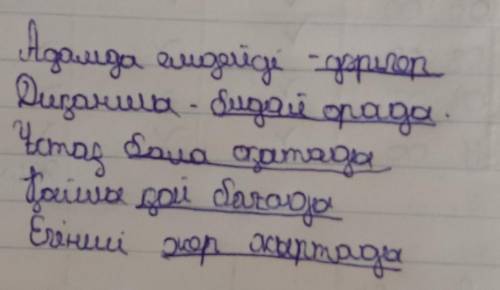 Адамда емдейді - дәрігер
Диқанша - бидай орада.
Ұстаз бала оқатады
Қойшы қой бағада
Егінші жер жыртады